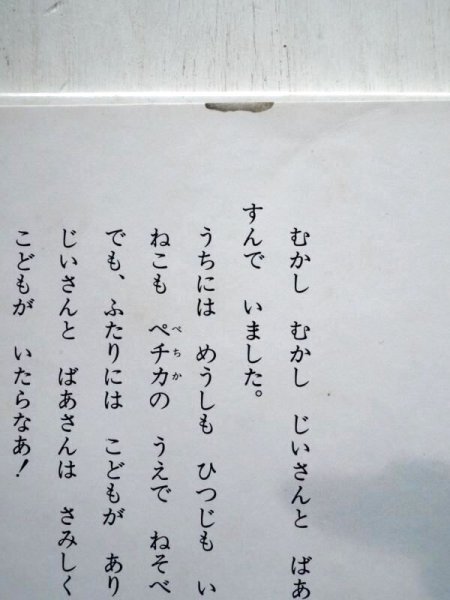 むかし むかし じいさんと ばあ
すんで いました。
うちには めうしも ひつじも い
ねこも ペチカの うえで ねそべ
ぺちか
でも、ふたりには こどもが あり
じいさんと ばあさんは さみしく
こどもが いたらなあ!